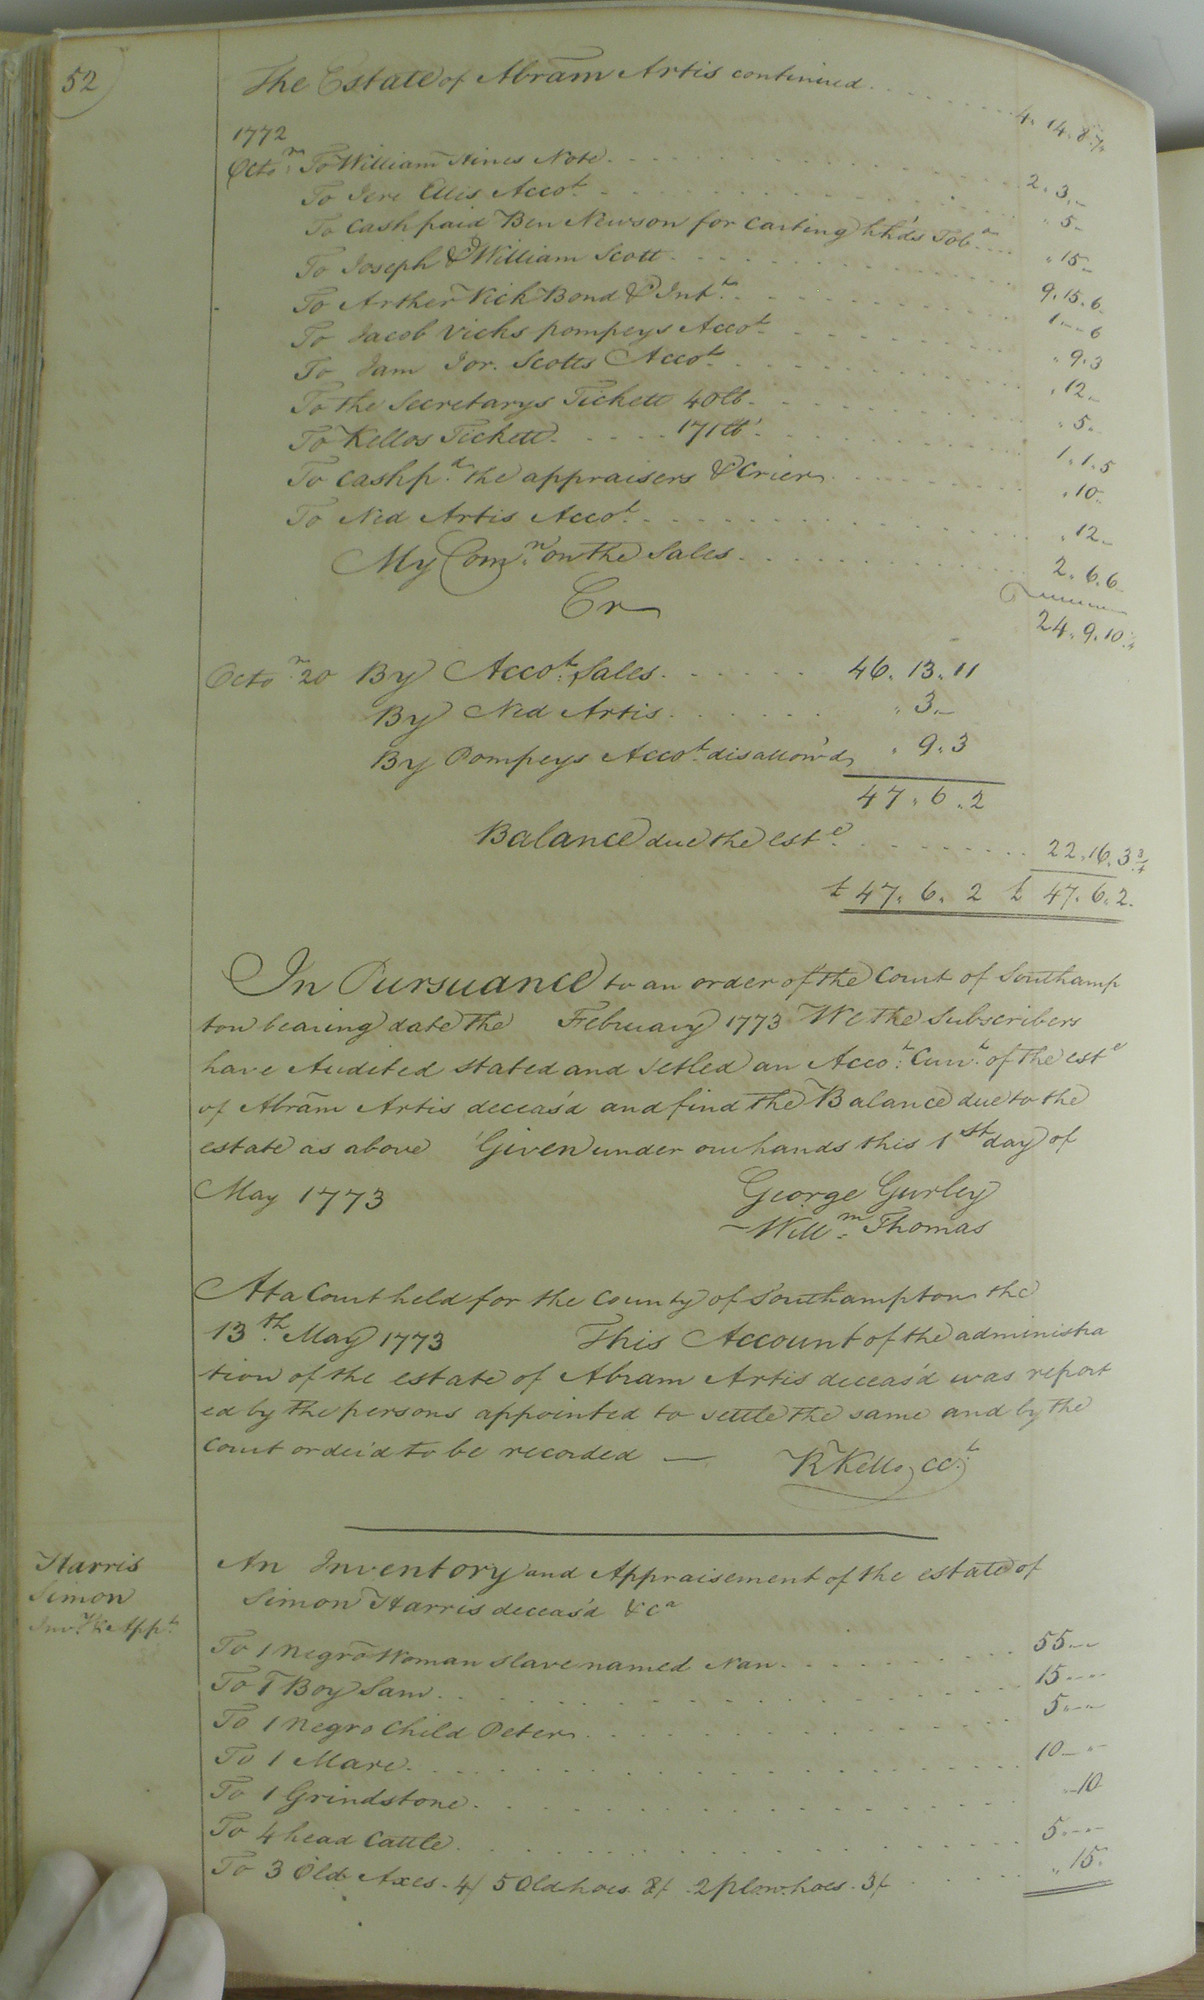 52
The Estate of Abram Artis continued . . . . . . . . 4. 14. 8.
1772
Octor. To William Hines Note . . . . . . . . 2. 3. -
To Jere Ellis Accot. . . . . . . . . " 5 -
To Cash paid Ben Newsom for carting hhds Tobo. . . . . . " 15 -
To Joseph & William Scott . . . . . . . . 9. 15. 6
To Arther Vick Bond & Intt. . . . . . . . 1. - 6
To Jacob Vicks pompeys Accot. . . . . . . " 9. 3
To Jam Jor. Scotts Accot. . . . . . . . " 12 -
To the Secretarys Tickett 40lb. . . . . . . " 5 -
To Kellos Tickett . . . . . 171lb. . . . . . . 1. 1. 5
To Cash pd. the appraisers & Crier . . . . . . . " 10 -
To Ned Artis Accot. . . . . . . . " 12 -
My Comn. on the Sales . . . . . . . . 2. 6. 6
24. 9. 10
Cr
Octor. 20 By Accot. Sales . . . . . . 46. 13. 11
By Ned Artis . . . . . . " 3 -
By Pompeys Accot. disallow'd " 9. 3
47. 6. 2
Balance due the este. . . . . . . . . 22. 16. 3 3/4
£ 47. 6. 2 £ 47. 6. 2.
In Pursuance to an order of the Court of Southamp
ton bearing date the February 1773 We the Subscribers
have Audited stated and setled an Accot. Curt. of the este
of Abram Artis deceas'd and find the Balance due to the
estate as above Given under our hands this 1st day of
May 1773 George Gurley
Willm. Thomas
At a Court held for the County of Southampton the
13th. May 1773 This Account of the administra
tion of the estate of Abram Artis deceas'd was report
ed by the persons appointed to settle the same and by the
Court order'd to be recorded — R Kello CCt.
Harris
Simon
Invy. & Appt.
An Inventory and Appraisement of the estate of
Simon Harris deceas'd &ca
To 1 Negro Woman slave named Nan . . . . . . . 55 - -
To 1 Boy Sam . . . . . . . . 15 - -
To 1 Negro Child Peter . . . . . . . . 5 - -
To 1 Mare . . . . . . . . 10 - -
To 1 Grindstone . . . . . . . . - 10
To 4 head Cattle . . . . . . . . 5 - -
To 3 Old Axes . 4/ 5 Old hoes 8/ . 2 plow hoes . 3/ . . . . " 15.